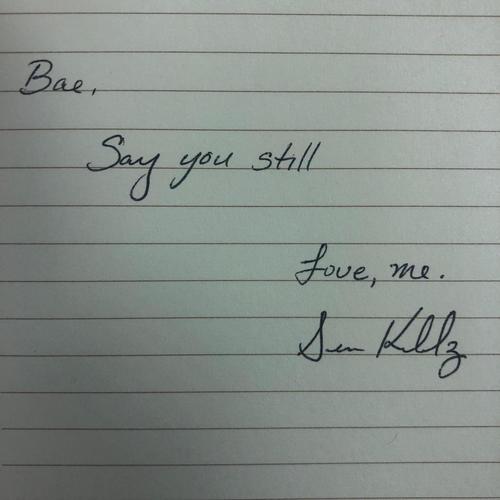 Bae,
Say you still
Love, me.
Sen Killz